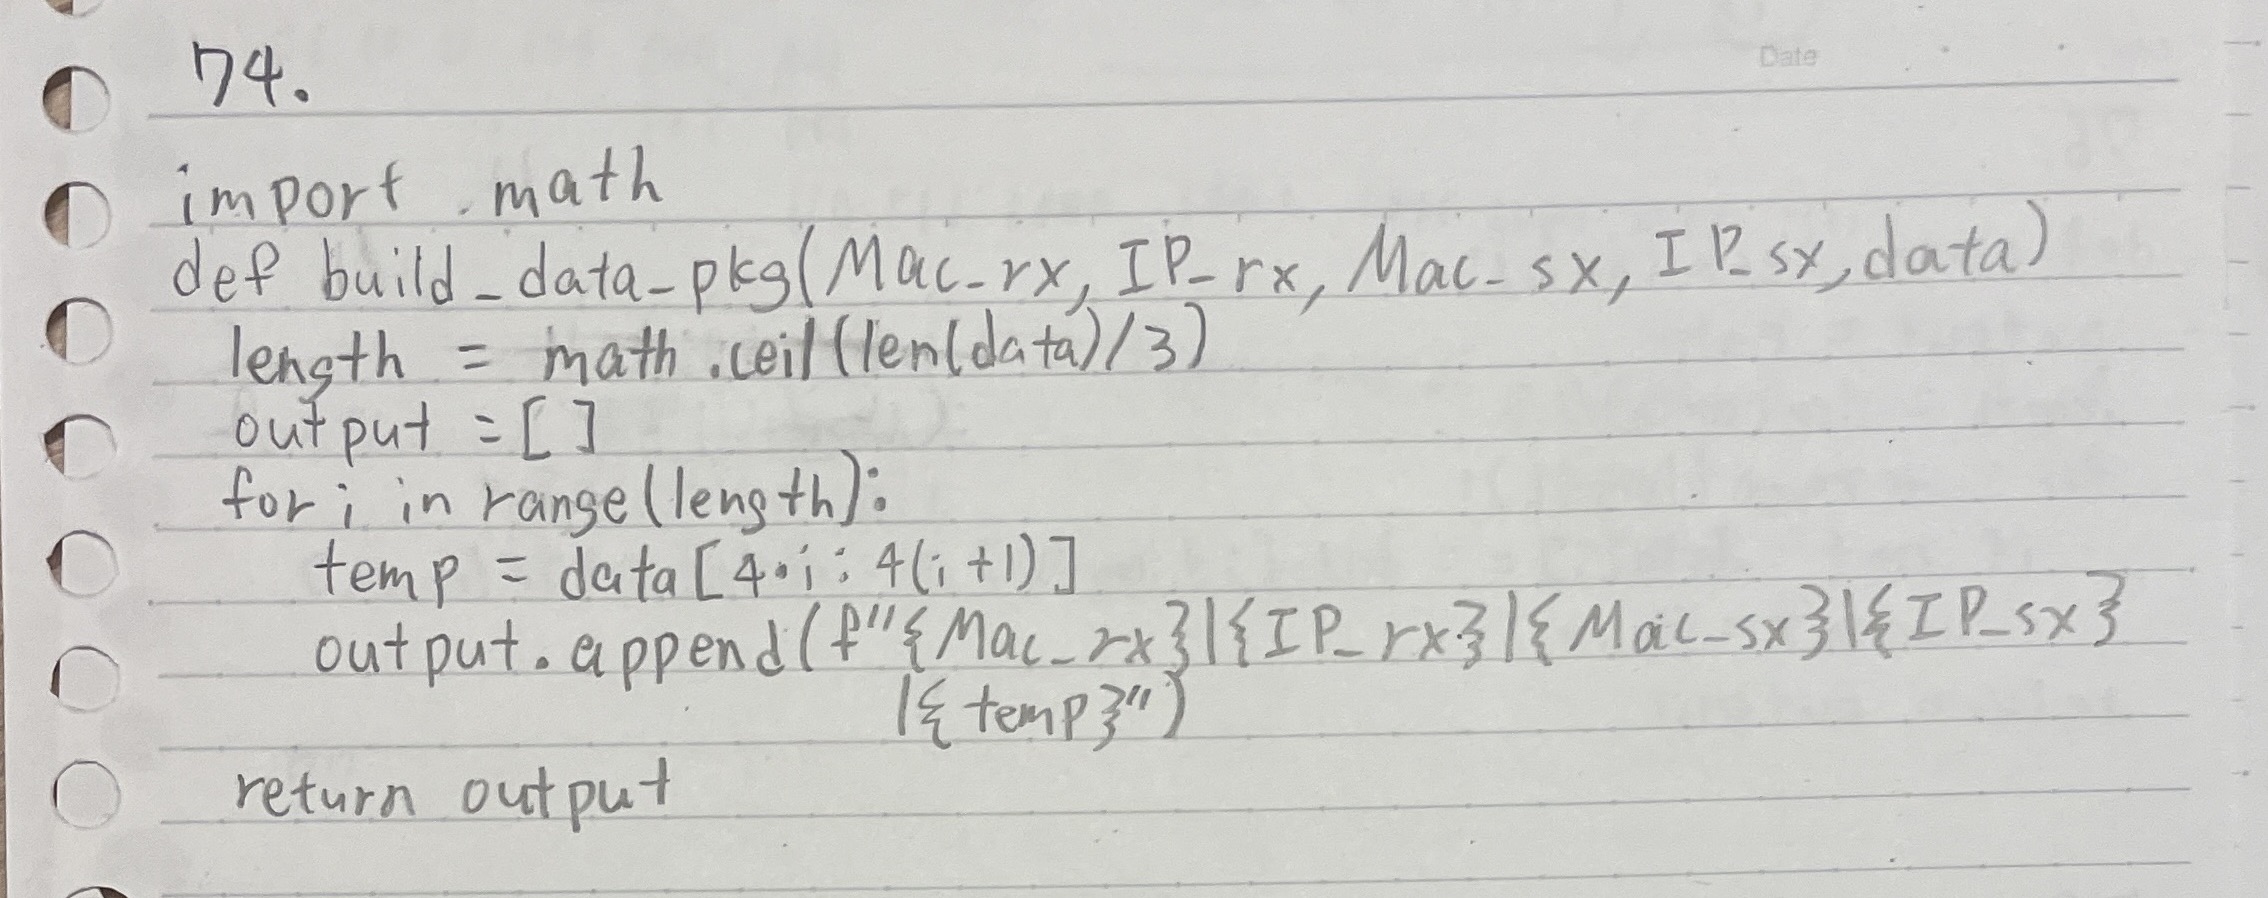 Date
74.
import math
def build_data_pkg(Mac_rx, IP_rx, Mac_sx, IP_sx, data)
length = math.ceil(len(data)/3)
output = []
for i in range(length):
temp = data[4·i : 4(i+1)]
output.append(f"{Mac_rx}|{IP_rx}|{Mac_sx}|{IP_sx}
|{temp}")
return output